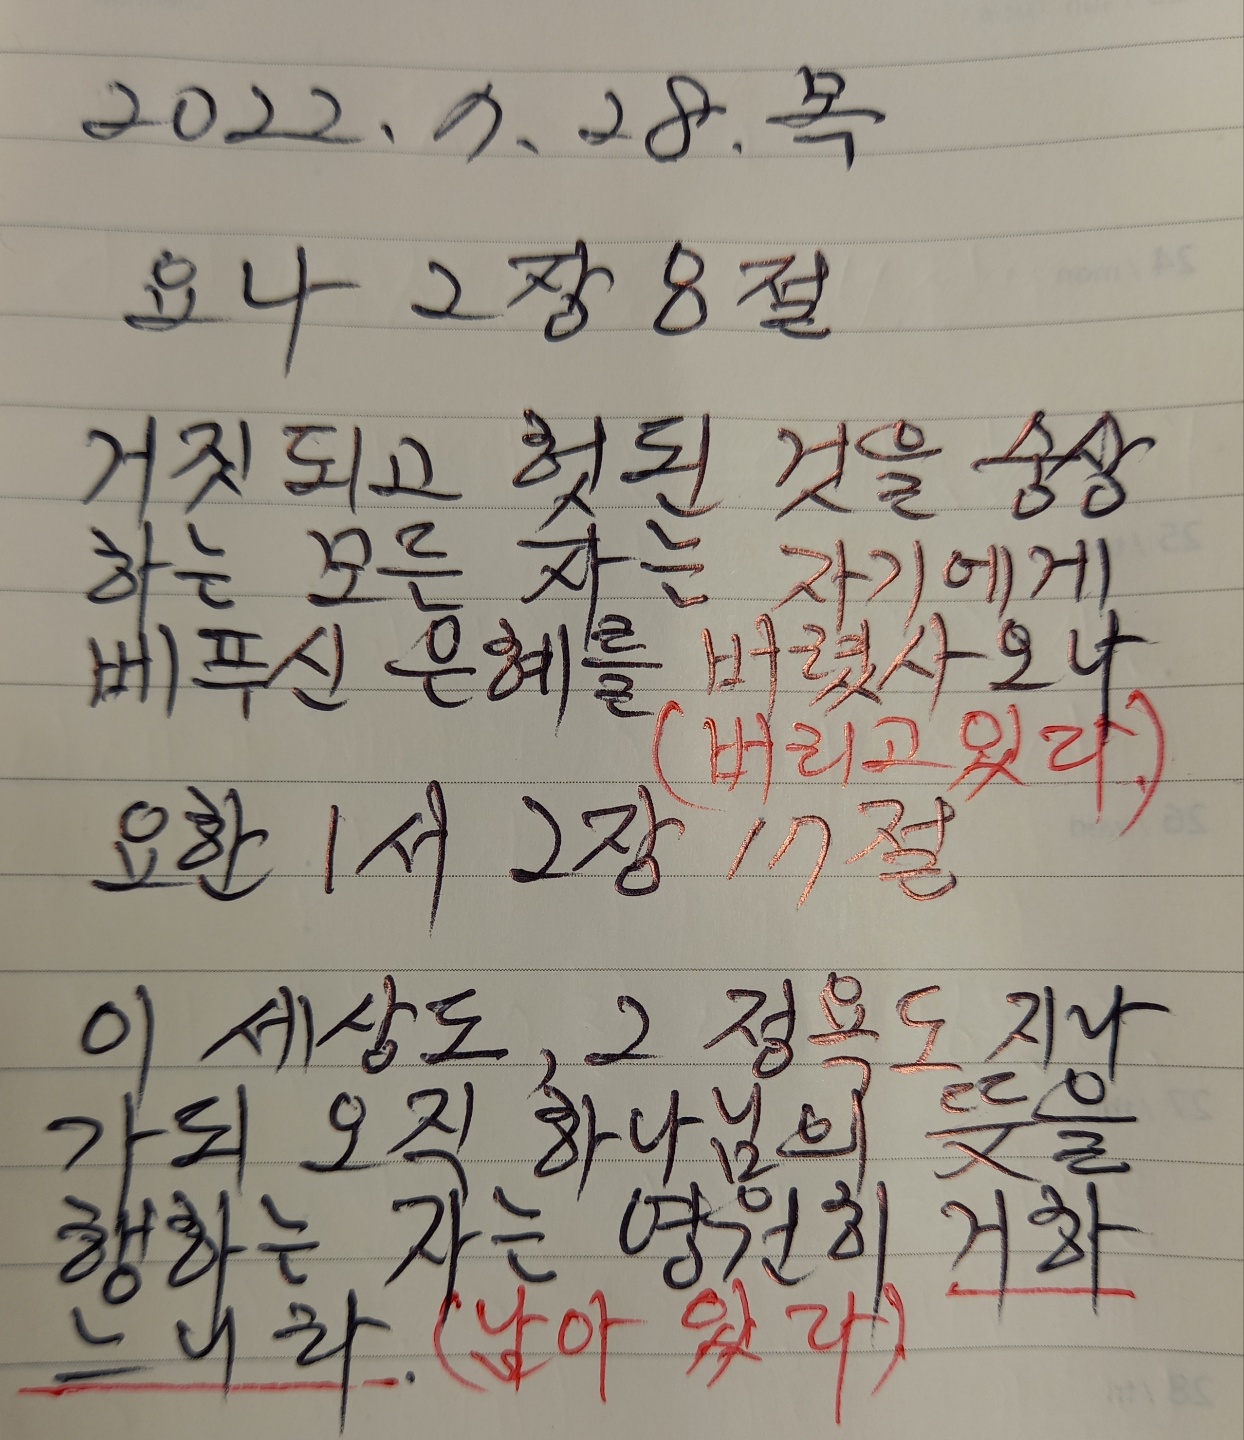 2022. 7. 28. 목
요나 2장 8절
거짓되고 헛된 것을 숭상
하는 모든 자는 자기에게
베푸신 은혜를 버렸사오나
(버리고 있다.)
요한 1서 2장 17절
이 세상도, 그 정욕도 지나
가되 오직 하나님의 뜻을
행하는 자는 영원히 거하
느니라. (남아 있다)